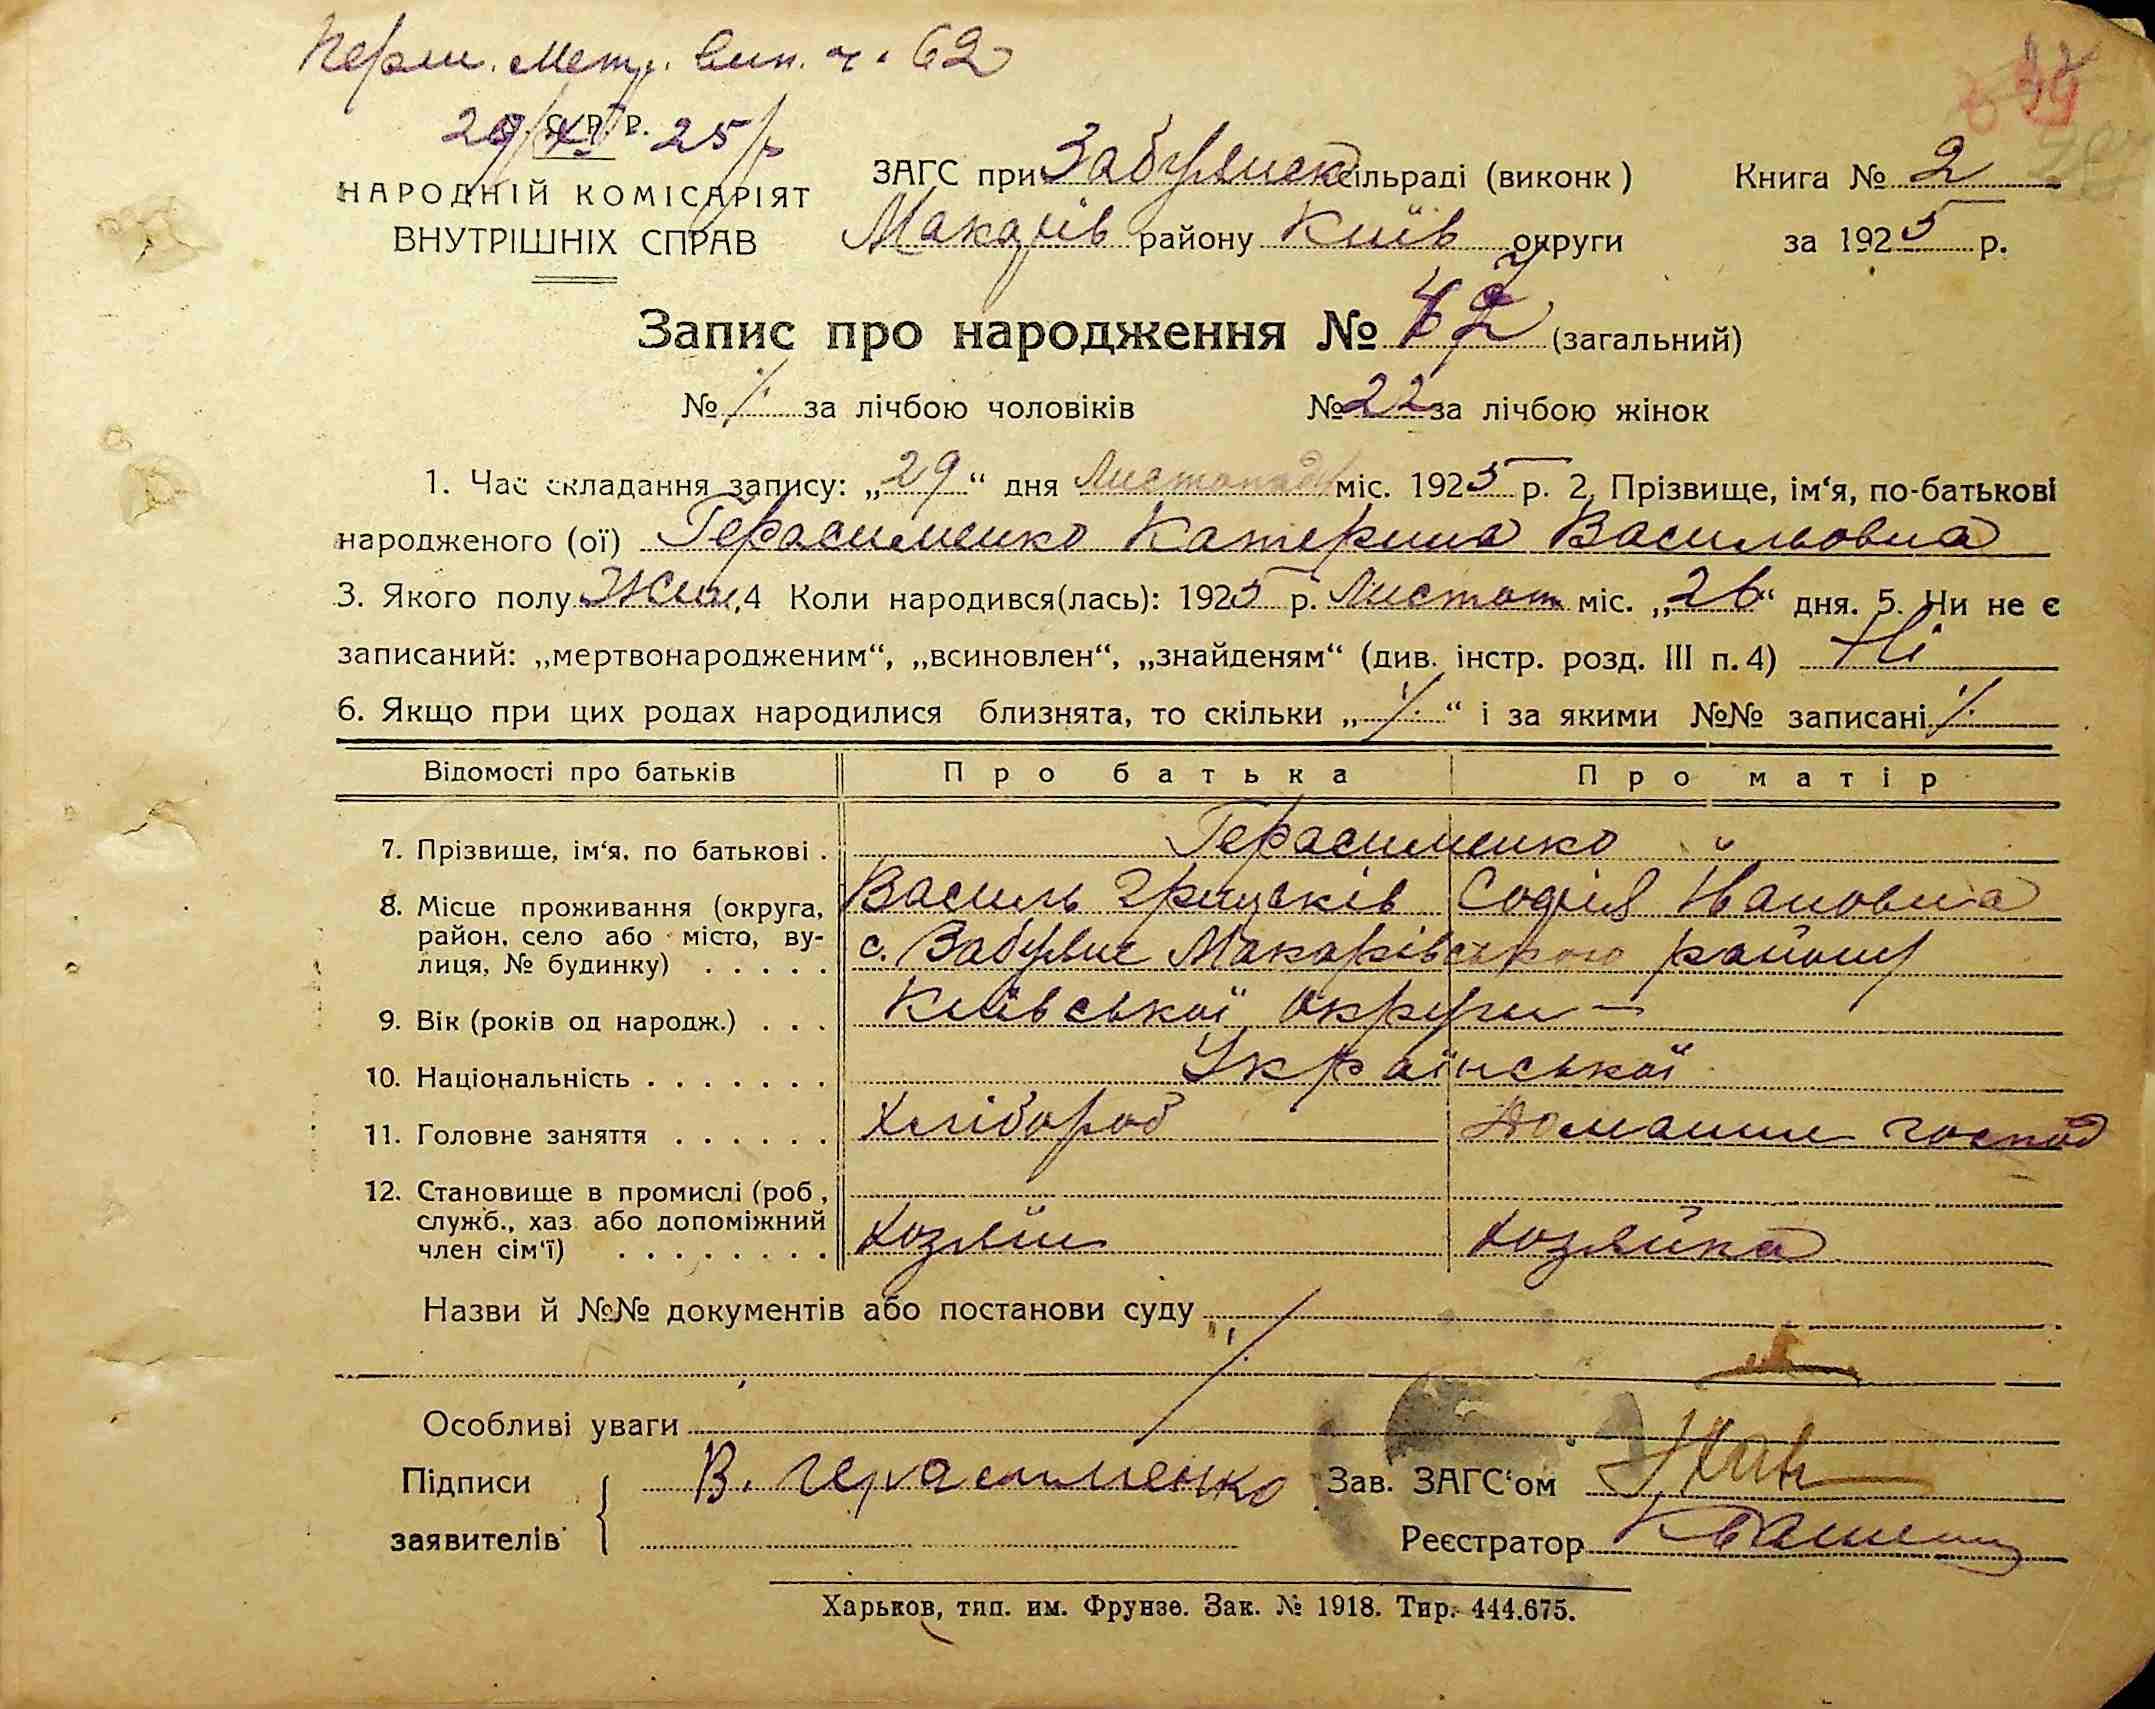 Перш. Метр. вип. ч. 62
29/XI 25 р
У. С. Р. Р.
НАРОДНІЙ КОМІСАРІЯТ
ВНУТРІШНІХ СПРАВ
ЗАГС при Забуянск сільраді (виконк)
Макарів району Київ округи
Книга № 2
за 1925 р.
Запис про народження № (загальний)
№ ·/· за лічбою чоловіків № 22 за лічбою жінок
1. Час складання запису: „29“ дня Листопада міс. 1925 р. 2. Прізвище, ім‘я, по-батькові
народженого (ої) Герасименко Катерина Васильовна
3. Якого полу Жін, 4 Коли народився(лась): 1925 р. Листоп міс. „26“ дня. 5. Чи не є
записаний: „мертвонародженим“, „всиновлен“, „знайденям“ (див. інстр. розд. III п. 4) Ні
6. Якщо при цих родах народилися близнята, то скільки „·/·“ і за якими №№ записані ·/·
Відомості про батьків Про батька Про матір
7. Прізвище, ім‘я, по батькові . Герасименко
8. Місце проживання (округа, Василь Грицьків Софія Івановна
район, село або місто, ву-
лиця, № будинку) . . . . . с. Забуяне Макарівського району
9. Вік (років од народж.) . . . Київської округи —
10. Національність . . . . . . . Української
11. Головне заняття . . . . . . Хлібороб Домашне господ
12. Становище в промислі (роб ,
служб., хаз. або допоміжний
член сім‘ї) . . . . . . . . Хозяін Хозяйка
Назви й №№ документів або постанови суду ·/·
Особливі уваги
Підписи В. Герасименко Зав. ЗАГС‘ом
заявителів Реєстратор
Харьков, тип. им. Фрунзе. Зак. № 1918. Тир. 444.675.